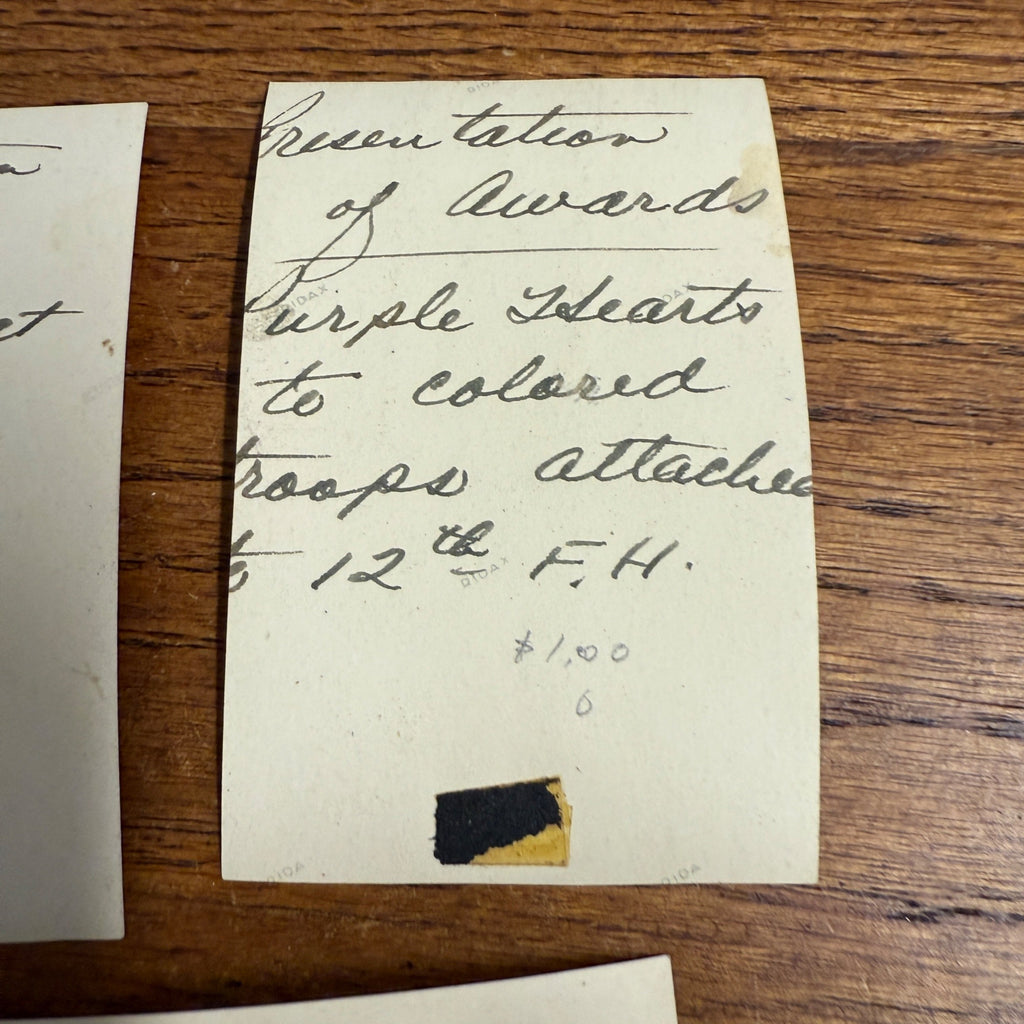 Presentation
of Awards
Purple Hearts
to colored
troops attached
to 12th F.H.
$1.00
6
RIDAX
RIDAX
RIDAX